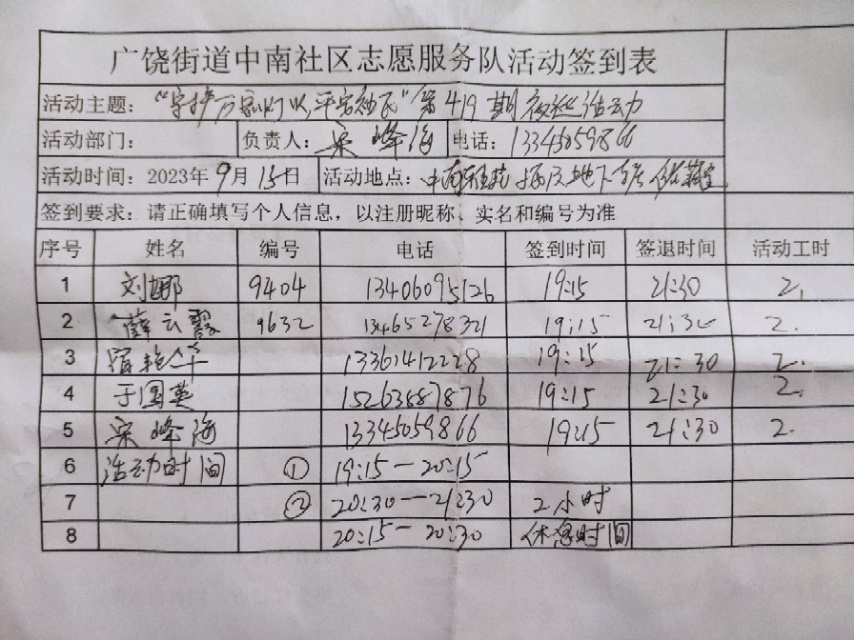 广饶街道中南社区志愿服务队活动签到表
活动主题：“守护万家灯火,平安袖民”第419期夜巡活动
活动部门： 负责人：宋峰海 电话：13345059866
活动时间：2023年9月15日 活动地点：中南 地下车库
签到要求：请正确填写个人信息，以注册昵称、实名和编号为准
序号 姓名 编号 电话 签到时间 签退时间 活动工时
1 刘娜 9404 13406095126 19:15 21:30 2.
2 薛云霞 9632 13465278321 19:15 21:30 2.
3 13361412228 19:15 21:30 2.
4 于国英 15263687876 19:15 21:30 2.
5 宋峰海 13345059866 19:15 21:30 2.
6 活动时间 ① 19:15—20:15
7 ② 20:30—21:30 2小时
8 20:15—20:30 休息时间